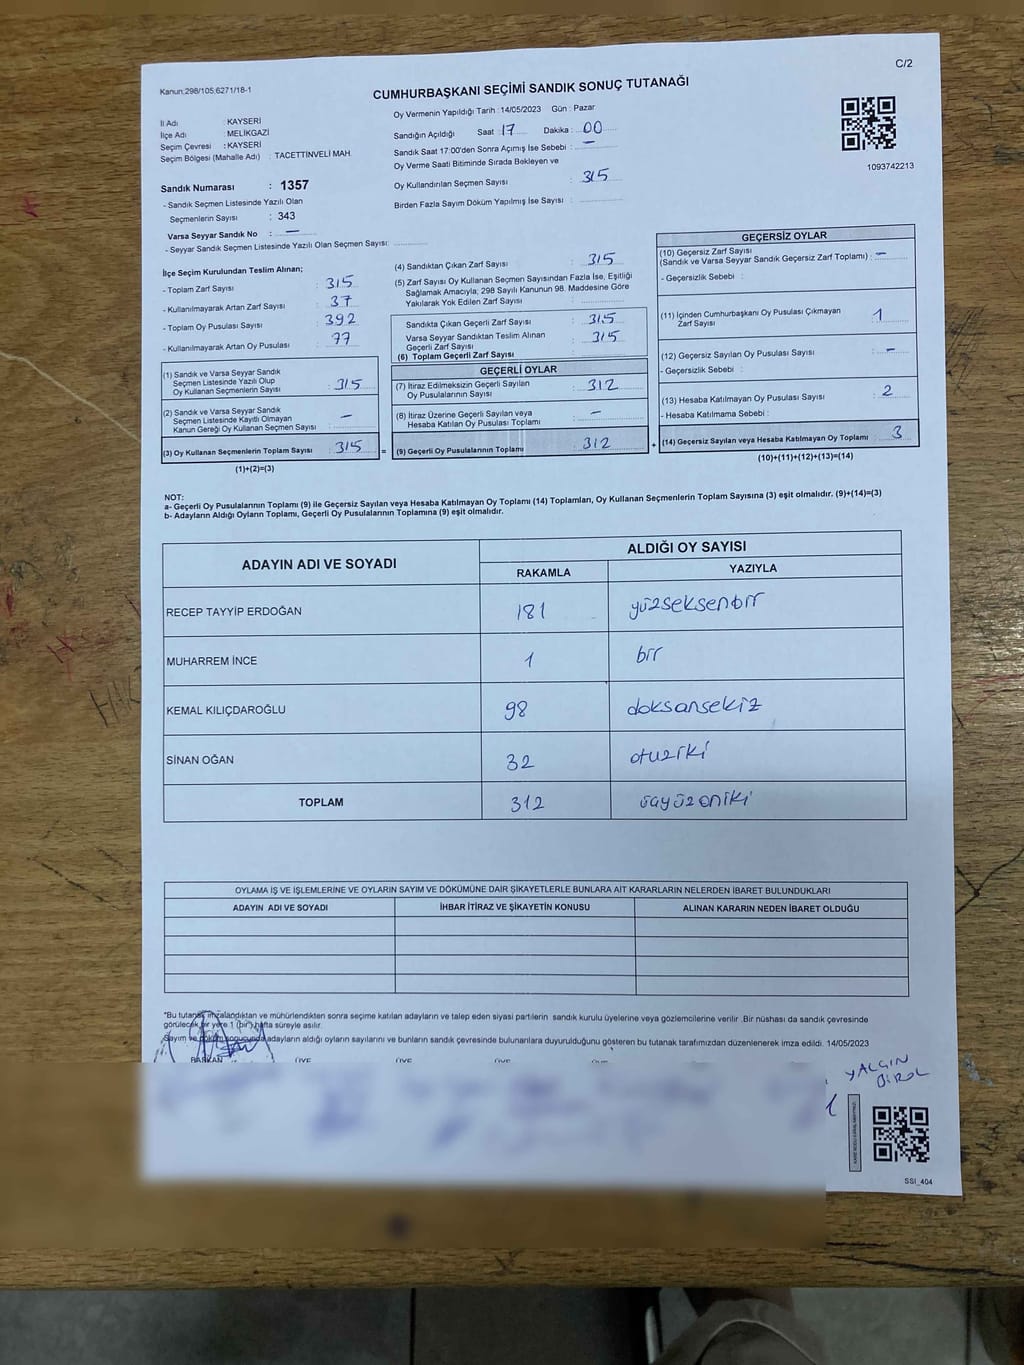 C/2
Kanun:298/105;6271/18-1
CUMHURBAŞKANI SEÇİMİ SANDIK SONUÇ TUTANAĞI
İl Adı : KAYSERİ
İlçe Adı : MELİKGAZİ
Seçim Çevresi : KAYSERİ
Seçim Bölgesi (Mahalle Adı) : TACETTİNVELİ MAH.
Sandık Numarası : 1357
- Sandık Seçmen Listesinde Yazılı Olan
Seçmenlerin Sayısı : 343
Varsa Seyyar Sandık No : —
- Seyyar Sandık Seçmen Listesinde Yazılı Olan Seçmen Sayısı:
Oy Vermenin Yapıldığı Tarih : 14/05/2023 Gün : Pazar
Sandığın Açıldığı Saat : 17 Dakika : 00
Sandık Saat 17:00'den Sonra Açımış İse Sebebi : —
Oy Verme Saati Bitiminde Sırada Bekleyen ve
Oy Kullandırılan Seçmen Sayısı : 315
Birden Fazla Sayım Döküm Yapılmış İse Sayısı :
1093742213
İlçe Seçim Kurulundan Teslim Alınan;
- Toplam Zarf Sayısı : 315
- Kullanılmayarak Artan Zarf Sayısı : 37
- Toplam Oy Pusulası Sayısı : 392
- Kullanılmayarak Artan Oy Pusulası : 77
(1) Sandık ve Varsa Seyyar Sandık
Seçmen Listesinde Yazılı Olup
Oy Kullanan Seçmenlerin Sayısı : 315
(2) Sandık ve Varsa Seyyar Sandık
Seçmen Listesinde Kayıtlı Olmayan
Kanun Gereği Oy Kullanan Seçmen Sayısı : —
(3) Oy Kullanan Seçmenlerin Toplam Sayısı : 315 =
(1)+(2)=(3)
(4) Sandıktan Çıkan Zarf Sayısı : 315
(5) Zarf Sayısı Oy Kullanan Seçmen Sayısından Fazla İse, Eşitliği
Sağlamak Amacıyla; 298 Sayılı Kanunun 98. Maddesine Göre
Yakılarak Yok Edilen Zarf Sayısı :
Sandıkta Çıkan Geçerli Zarf Sayısı : 315
Varsa Seyyar Sandıktan Teslim Alınan
Geçerli Zarf Sayısı : 315
(6) Toplam Geçerli Zarf Sayısı :
GEÇERLİ OYLAR
(7) İtiraz Edilmeksizin Geçerli Sayılan
Oy Pusulalarının Sayısı : 312
(8) İtiraz Üzerine Geçerli Sayılan veya
Hesaba Katılan Oy Pusulası Toplamı : —
(9) Geçerli Oy Pusulalarının Toplamı : 312 +
GEÇERSİZ OYLAR
(10) Geçersiz Zarf Sayısı
(Sandık ve Varsa Seyyar Sandık Geçersiz Zarf Toplamı) : —
- Geçersizlik Sebebi :
(11) İçinden Cumhurbaşkanı Oy Pusulası Çıkmayan
Zarf Sayısı : 1
(12) Geçersiz Sayılan Oy Pusulası Sayısı : —
- Geçersizlik Sebebi :
(13) Hesaba Katılmayan Oy Pusulası Sayısı : 2
- Hesaba Katılmama Sebebi :
(14) Geçersiz Sayılan veya Hesaba Katılmayan Oy Toplamı : 3
(10)+(11)+(12)+(13)=(14)
NOT:
a- Geçerli Oy Pusulalarının Toplamı (9) ile Geçersiz Sayılan veya Hesaba Katılmayan Oy Toplamı (14) Toplamları, Oy Kullanan Seçmenlerin Toplam Sayısına (3) eşit olmalıdır. (9)+(14)=(3)
b- Adayların Aldığı Oyların Toplamı, Geçerli Oy Pusulalarının Toplamına (9) eşit olmalıdır.
ADAYIN ADI VE SOYADI ALDIĞI OY SAYISI
RAKAMLA YAZIYLA
RECEP TAYYİP ERDOĞAN 181 yüzseksenbir
MUHARREM İNCE 1 bir
KEMAL KILIÇDAROĞLU 98 doksansekiz
SİNAN OĞAN 32 otuziki
TOPLAM 312 üçyüzoniki
OYLAMA İŞ VE İŞLEMLERİNE VE OYLARIN SAYIM VE DÖKÜMÜNE DAİR ŞİKAYETLERLE BUNLARA AİT KARARLARIN NELERDEN İBARET BULUNDUKLARI
ADAYIN ADI VE SOYADI İHBAR İTİRAZ VE ŞİKAYETİN KONUSU ALINAN KARARIN NEDEN İBARET OLDUĞU
*Bu tutanak imzalandıktan ve mühürlendikten sonra seçime katılan adayların ve talep eden siyasi partilerin sandık kurulu üyelerine veya gözlemcilerine verilir .Bir nüshası da sandık çevresinde
görülecek bir yere 1 (bir) hafta süreyle asılır.
Sayım ve döküm sonucunda adayların aldığı oyların sayılarını ve bunların sandık çevresinde bulunanlara duyurulduğunu gösteren bu tutanak tarafımızdan düzenlenerek imza edildi. 14/05/2023
BAŞKAN ÜYE ÜYE ÜYE
YALÇIN
BİROL
SSI_404